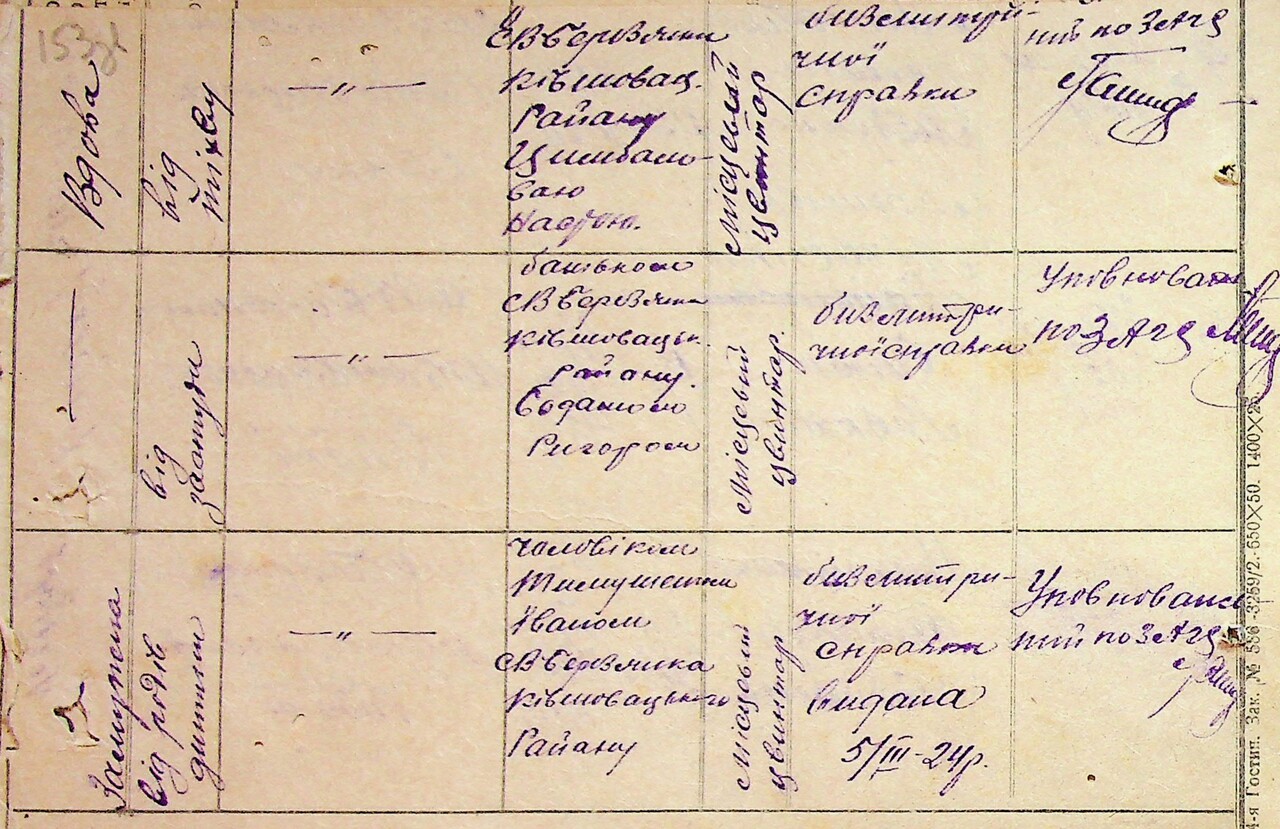 153
Вдова
від
тіхву
— „ —
с. В Беровянки
Кішовац.
Райану
Цимбало-
вою
Настею.
місцевий
цвинтар
бивлитрй-
чної
справки
ний по ЗАГС
від
задтуди
— „ —
батьком
с. В Беровянка
Райану.
Боданою
Ригором
місцевий
цвинтар.
бивлитри-
чної справки
Уповноваж
по ЗАГС
Замужема
від родів
дитини
— „ —
чоловіком
Тимушенком
Іваном
с. В Беровянка
Кішовацького
Райану
місцевий
цвинтар
бивлитри-
чної
справки
видана
5/III-24р.
Уповноваже
ний по ЗАГС
4-я Гостип. Зак. № 506-3259/2. 650×50. 1400×25.